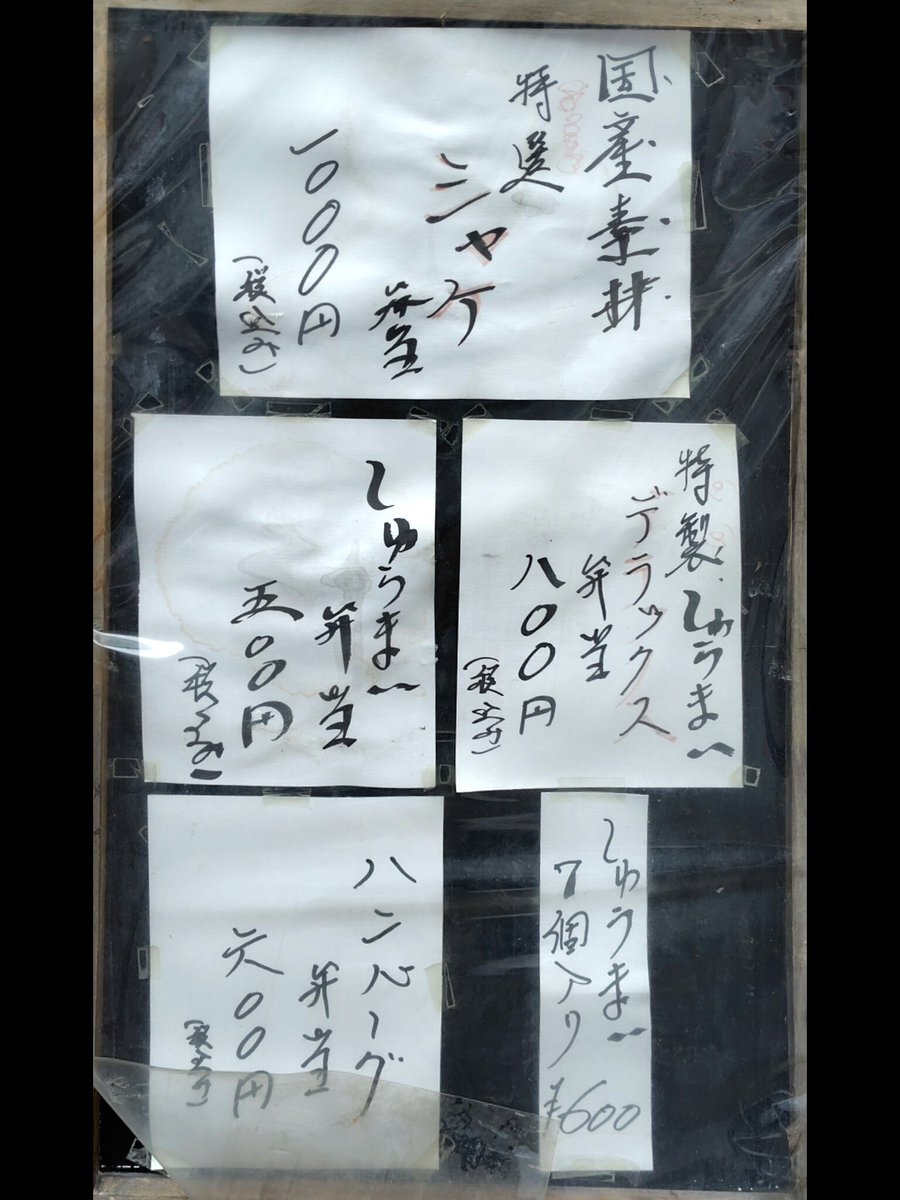 国産素材
特選
シャケ
弁当
一〇〇〇円
(税込み)
特製しゅうまい
デラックス
弁当
八〇〇円
(税込み)
しゅうまい
弁当
五〇〇円
(税込み)
しゅうまい
7個入り ¥600
ハンバーグ
弁当
六〇〇円
(税込み)